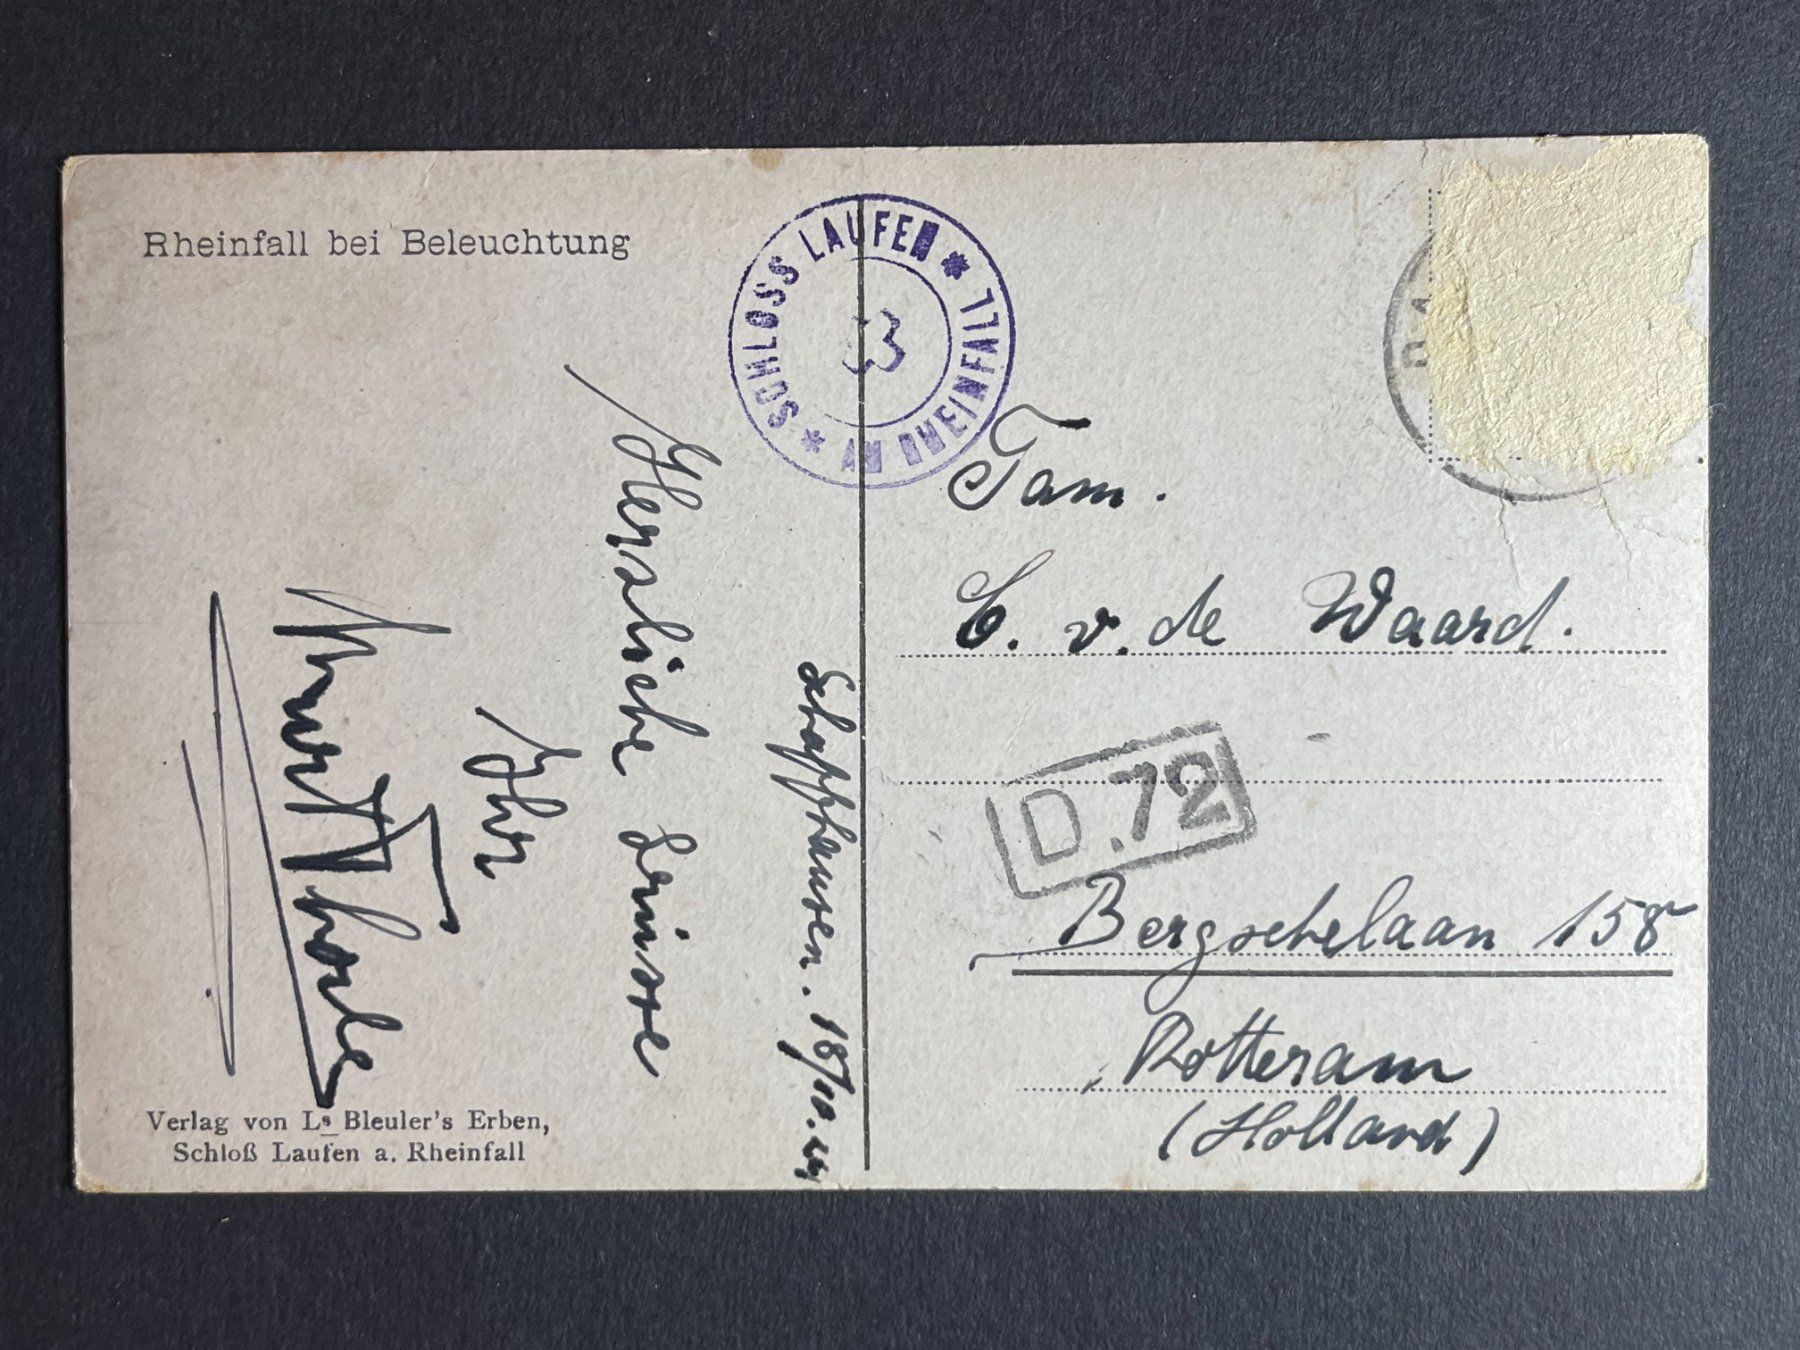 Rheinfall bei Beleuchtung
SCHLOSS LAUFEN * AM RHEINFALL *
Schaffhausen. 18/10.
Herzliche Grüsse
Ihr
Kurt
Verlag von Ls Bleuler's Erben,
Schloß Laufen a. Rheinfall
Fam.
C. v. de Waard.
D.72
Bergschelaan 158
Rotteram
(Holland)